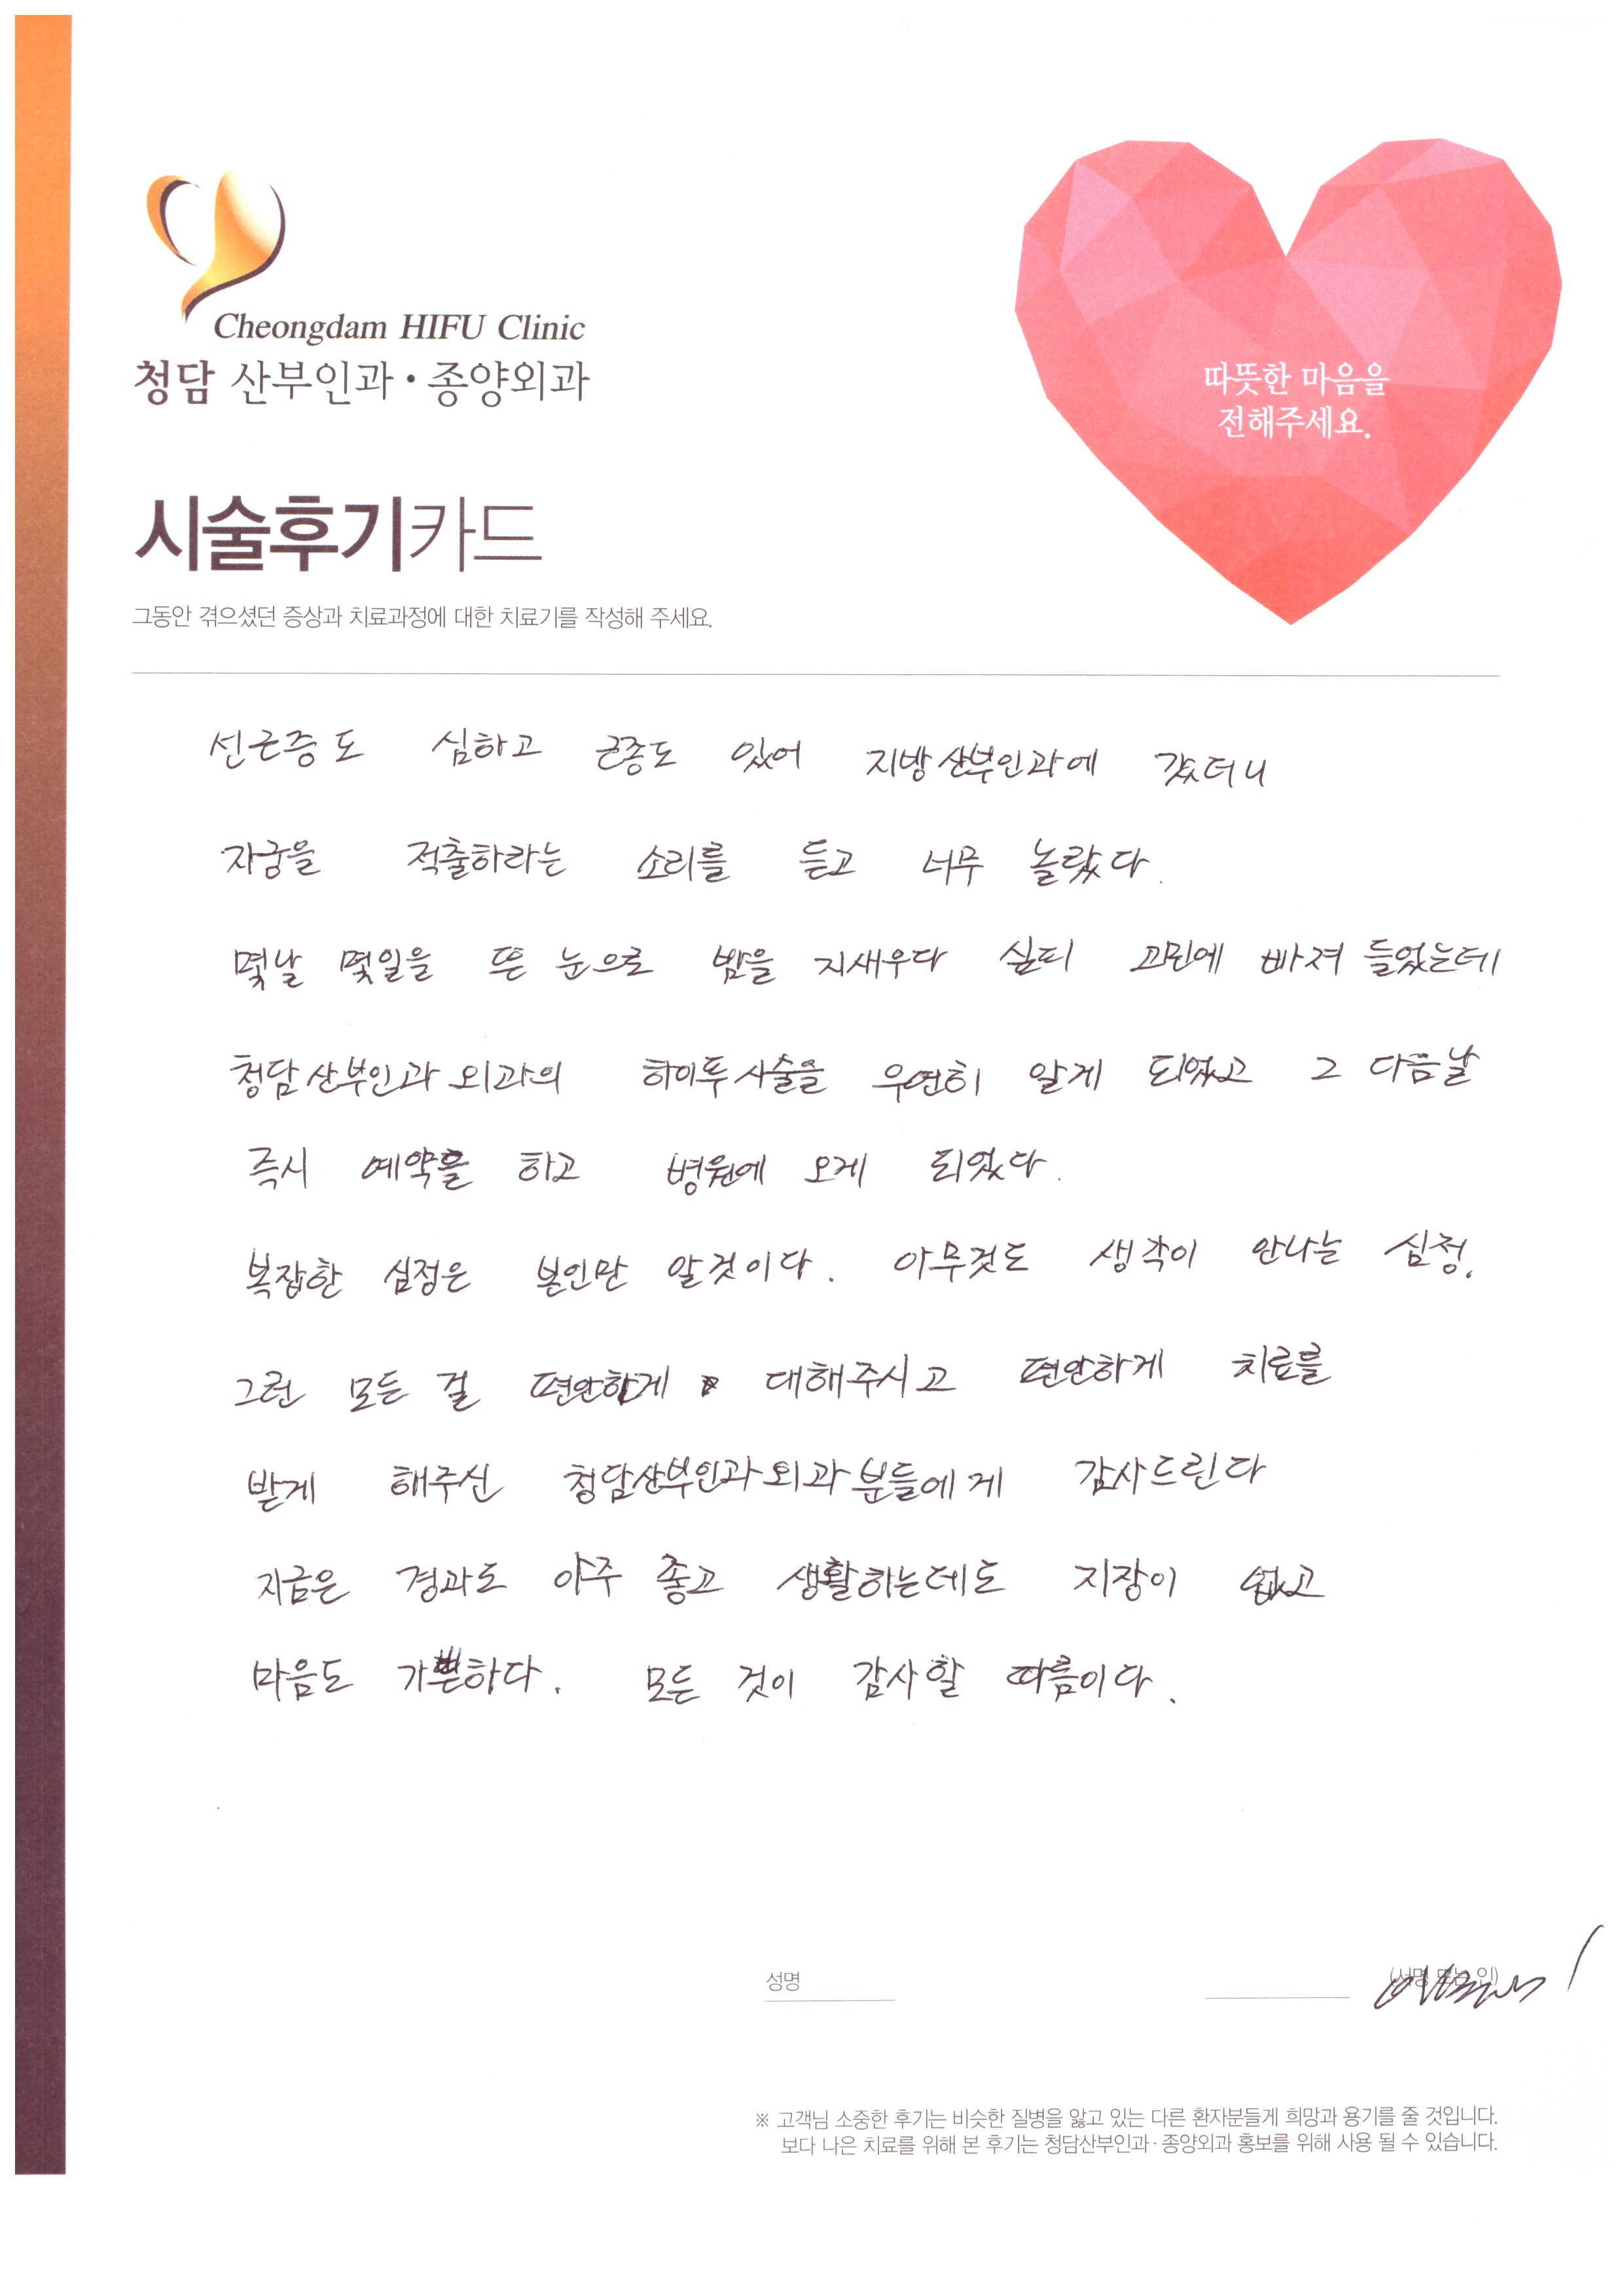 Cheongdam HIFU Clinic
청담 산부인과·종양외과
따뜻한 마음을
전해주세요.
시술후기카드
그동안 겪으셨던 증상과 치료과정에 대한 치료기를 작성해 주세요.
선근증도 심하고 근종도 있어 지방산부인과에 갔더니
자궁을 적출하라는 소리를 듣고 너무 놀랐다.
몇날 몇일을 뜬 눈으로 밤을 지새우다 싶티 고민에 빠져 들었는데
청담산부인과외과의 하이푸시술을 우연히 알게 되었고 그 다음날
즉시 예약을 하고 병원에 오게 되었다.
복잡한 심정은 본인만 알것이다. 아무것도 생각이 안나는 심정.
그런 모든 걸 편안하게 대해주시고 편안하게 치료를
받게 해주신 청담산부인과외과분들에게 감사드린다
지금은 경과도 아주 좋고 생활하는데도 지장이 없고
마음도 가쁜하다. 모든 것이 감사할 따름이다.
성명
(서명 또는 인)
※ 고객님 소중한 후기는 비슷한 질병을 앓고 있는 다른 환자분들게 희망과 용기를 줄 것입니다.
보다 나은 치료를 위해 본 후기는 청담산부인과·종양외과 홍보를 위해 사용 될 수 있습니다.